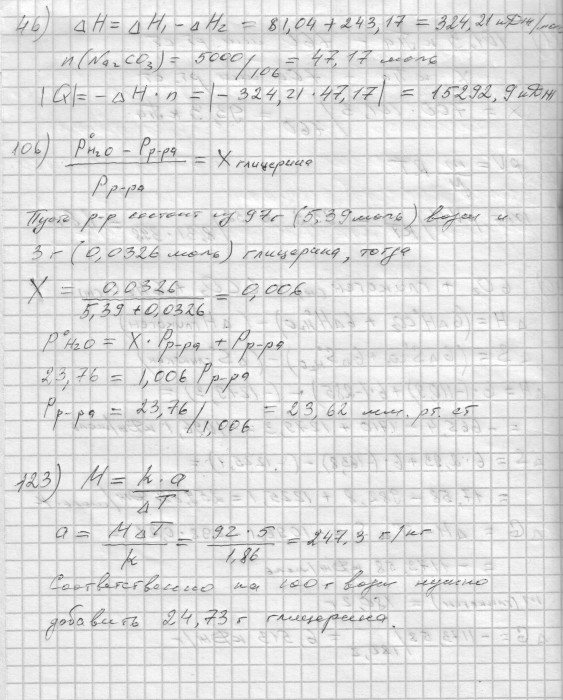 46) ΔH = ΔH₁ - ΔH₂ = 81,04 + 243,17 = 324,21 кДж/моль
n(Na₂CO₃) = 5000/106 = 47,17 моль
|Q| = -ΔH · n = |-324,21 · 47,17| = 15292,9 кДж
106) (P°H₂O - Pр-ра)/Pр-ра = X глицерина
Пусть р-р состоит из 97г (5,39 моль) воды и
3г (0,0326 моль) глицерина, тогда
X = 0,0326/(5,39 + 0,0326) = 0,006
P°H₂O = X · Pр-ра + Pр-ра
23,76 = 1,006 Pр-ра
Pр-ра = 23,76/1,006 = 23,62 мм. рт. ст
123) M = k · a/ΔT
a = MΔT/k = 92 · 5/1,86 = 247,3 г/кг
Соответственно на 100г воды нужно
добавить 24,73 г глицерина.